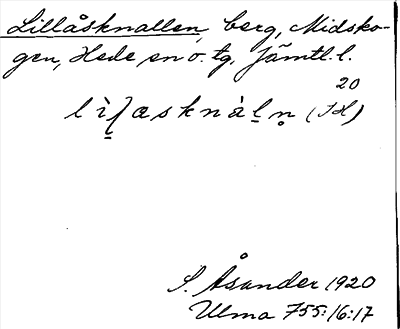 Lillåsknallen, berg, Midsko-
gen, Hede sn o. tg, Jämtl. l.
20
S. Åsander 1920
Ulma 755:16:17